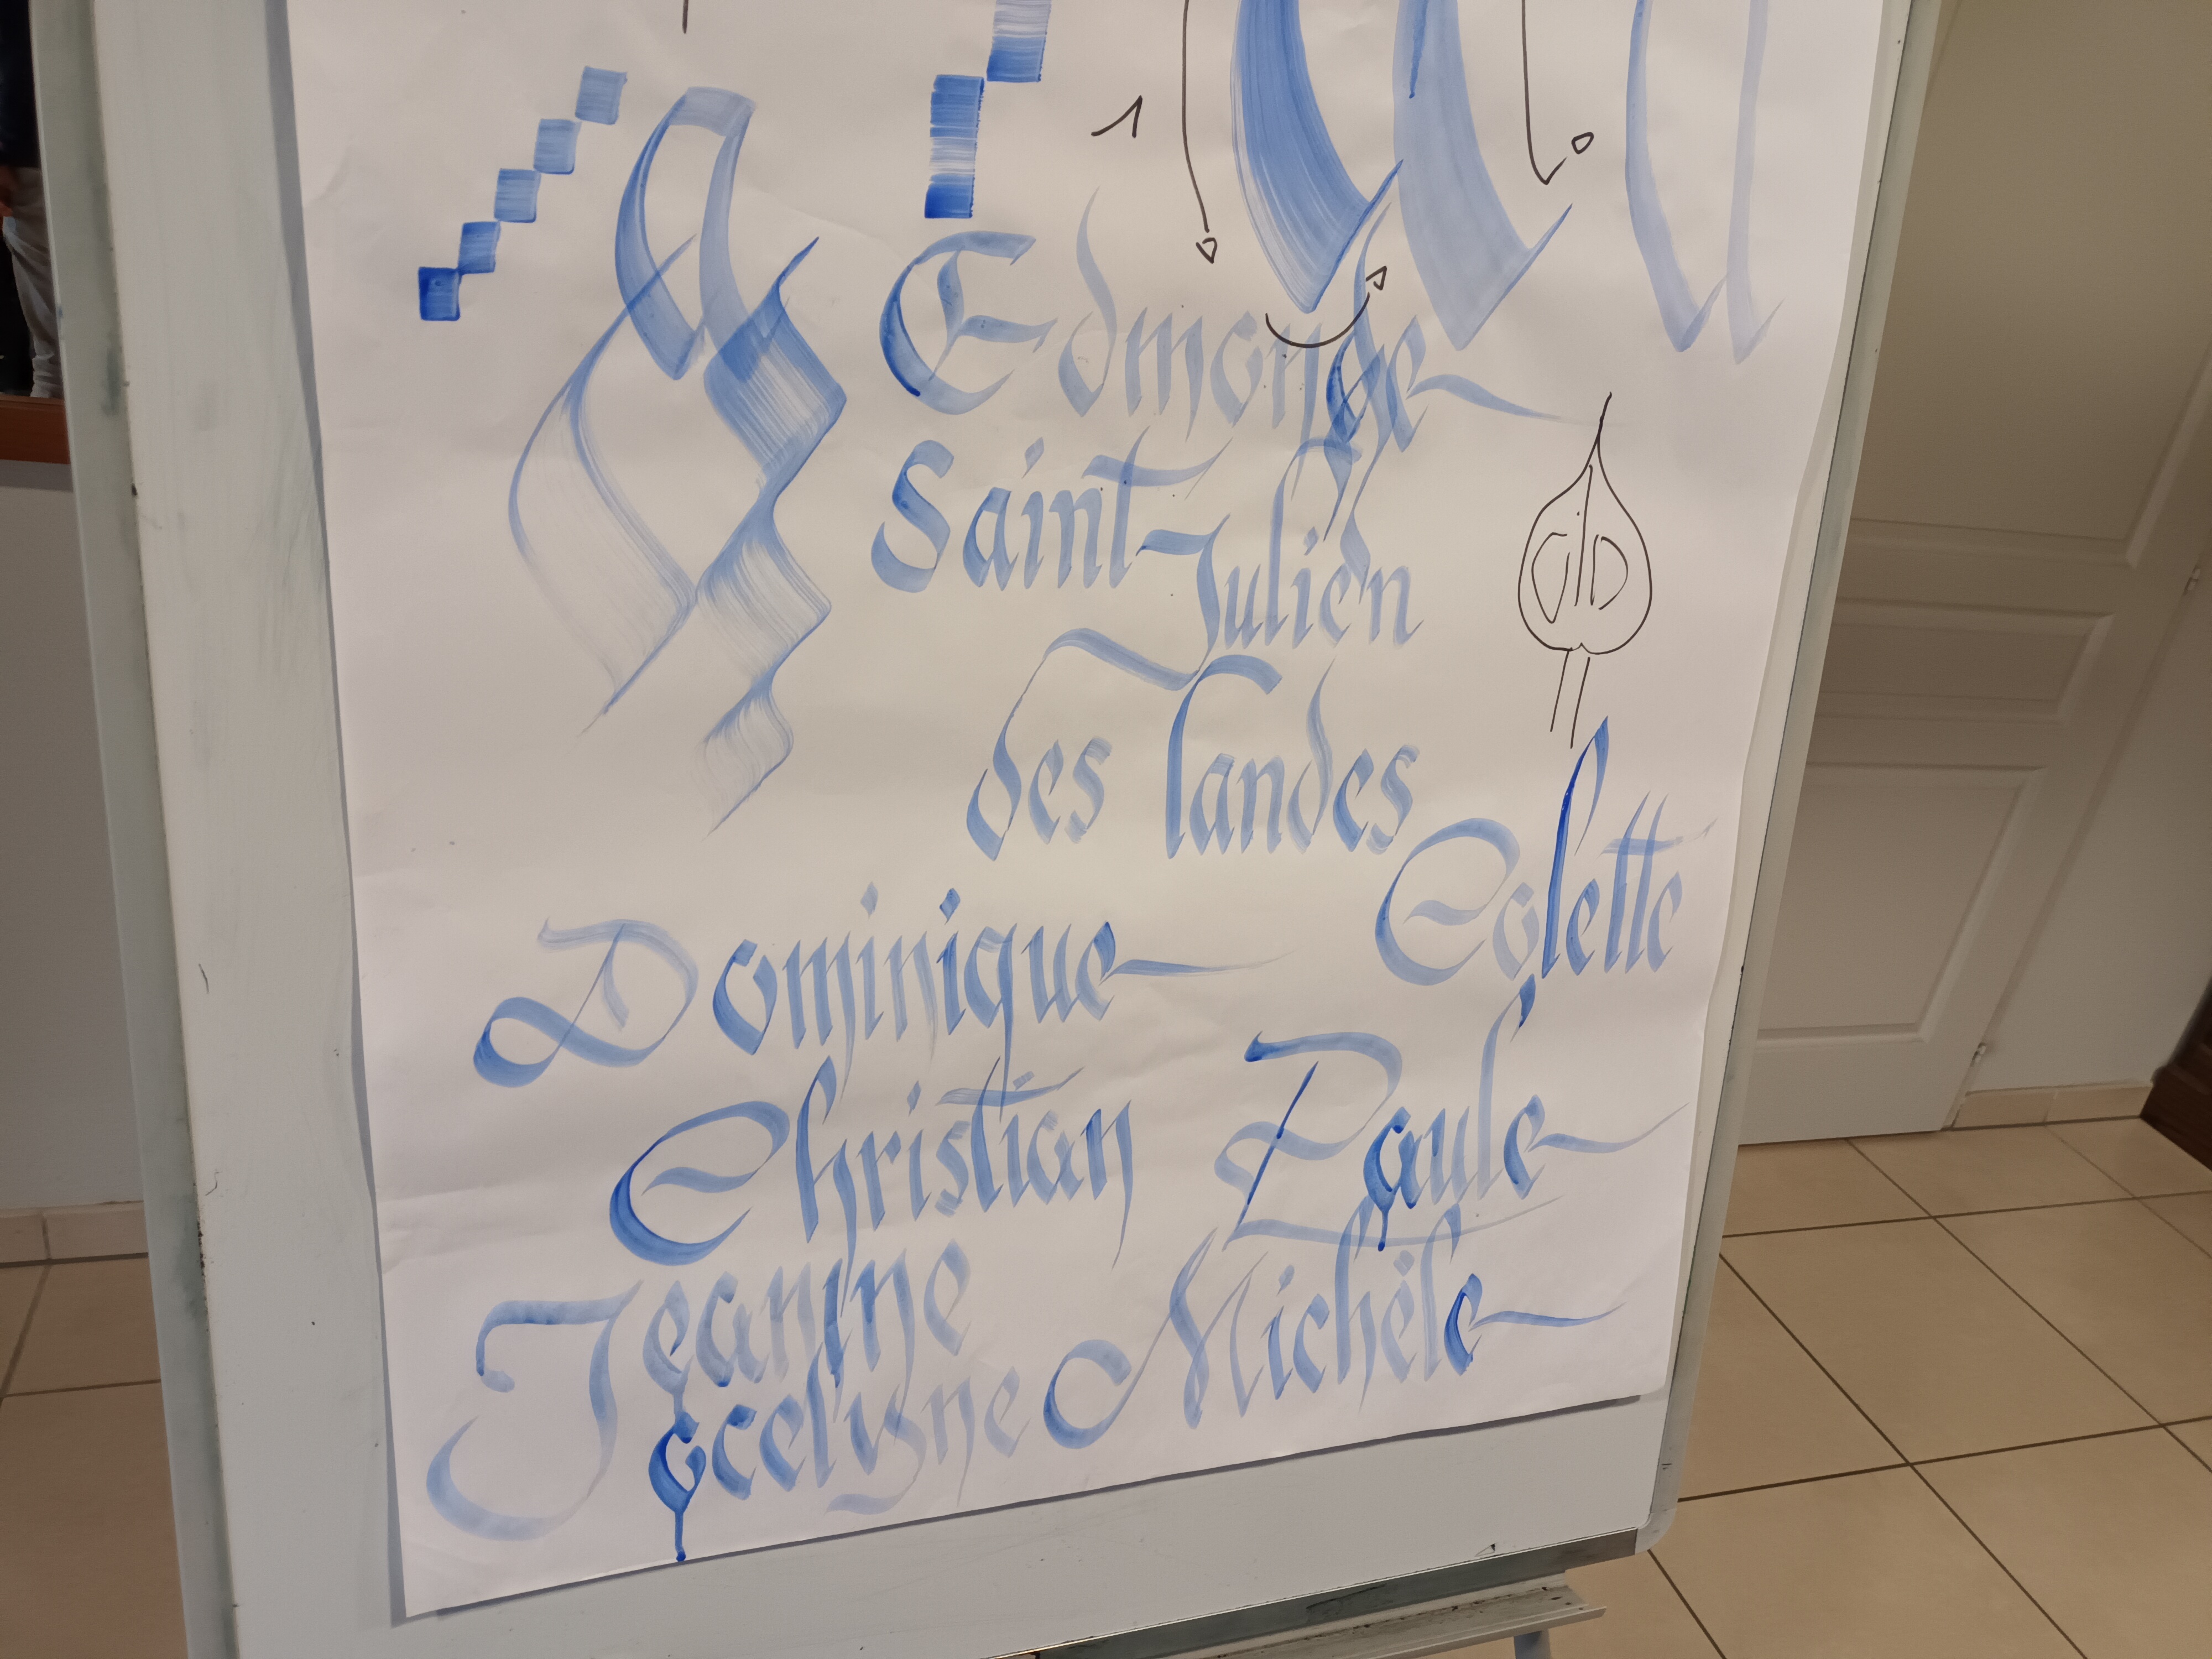 1
Edmonde
Saint-Julien
des Landes
Colette
Dominique
Christian
Paule
Jeanine
Michèle
Jocelyne